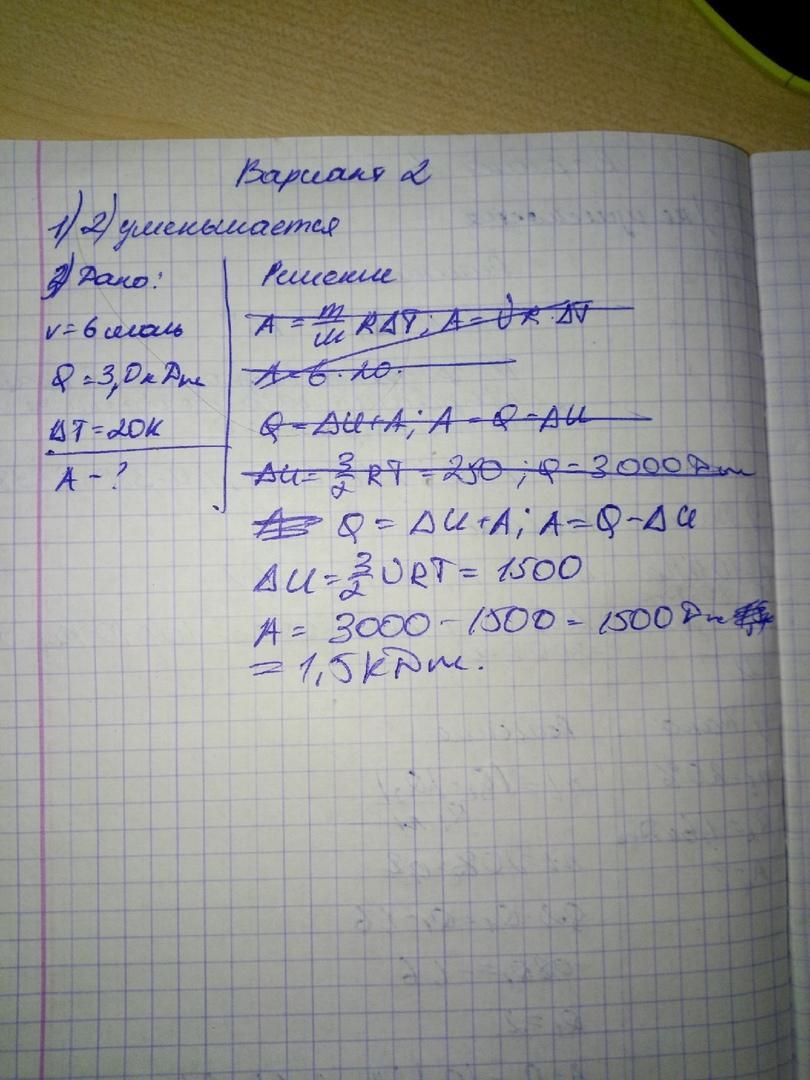 Вариант 2
1) 2) уменьшается
2) Дано:
ν = 6 моль
Q = 3,0 кДж
ΔT = 20К
A - ?
Решение
A = m/M RΔT; A = νR·ΔT
A = 6·20·
Q = ΔU+A; A = Q-ΔU
ΔU = 3/2 RT = 250; Q = 3000Дж
Q = ΔU+A; A = Q-ΔU
ΔU = 3/2 νRT = 1500
A = 3000 - 1500 = 1500 Дж
= 1,5кДж.